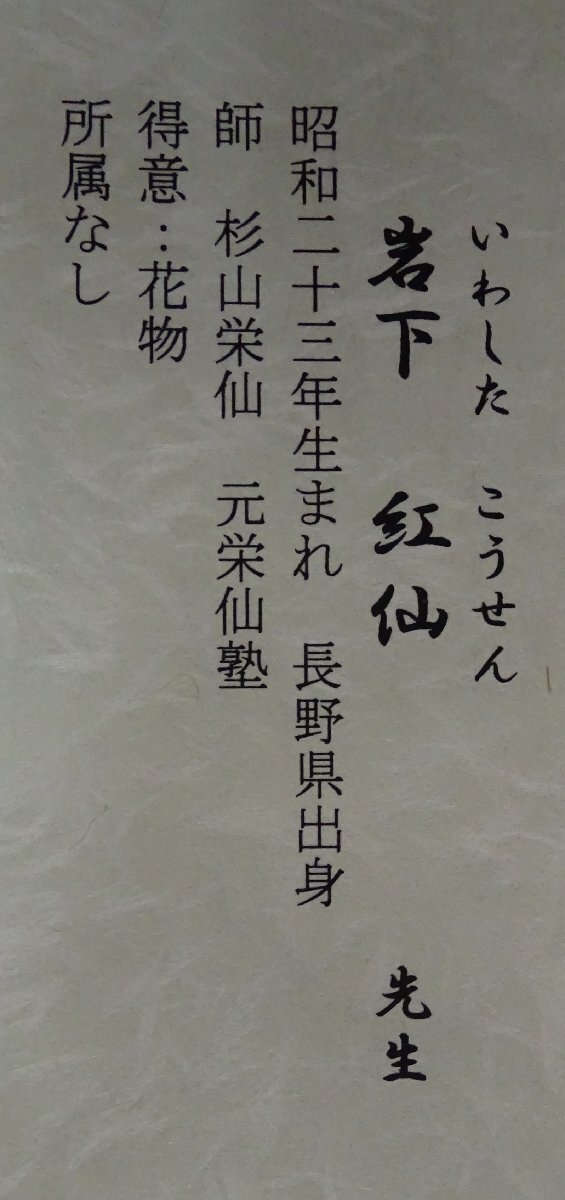 いわした こうせん
岩下 紅仙 先生
昭和二十三年生まれ 長野県出身
師 杉山栄仙 元栄仙塾
得意：花物
所属なし